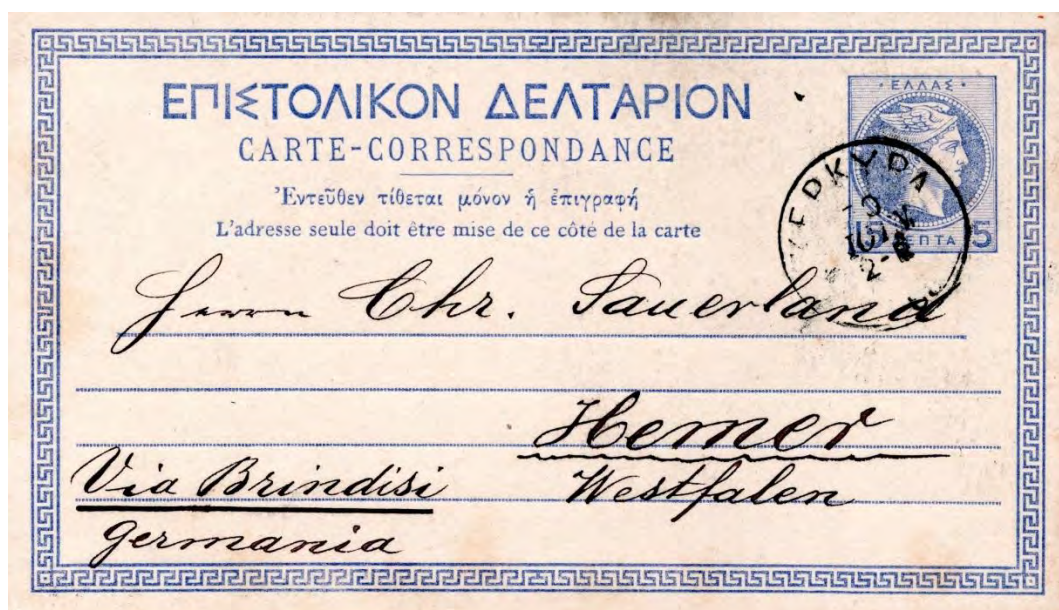 ΕΠΙΣΤΟΛΙΚΟΝ ΔΕΛΤΑΡΙΟΝ
CARTE-CORRESPONDANCE
Ἐντεῦθεν τίθεται μόνον ἡ ἐπιγραφή
L'adresse seule doit être mise de ce côté de la carte
· ΕΛΛΑΣ ·
15 ΛΕΠΤΑ 15
ΚΕΡΚΥΡΑ
Herrn Chr. Sauerland
Hemer
Via Brindisi Westfalen
Germania